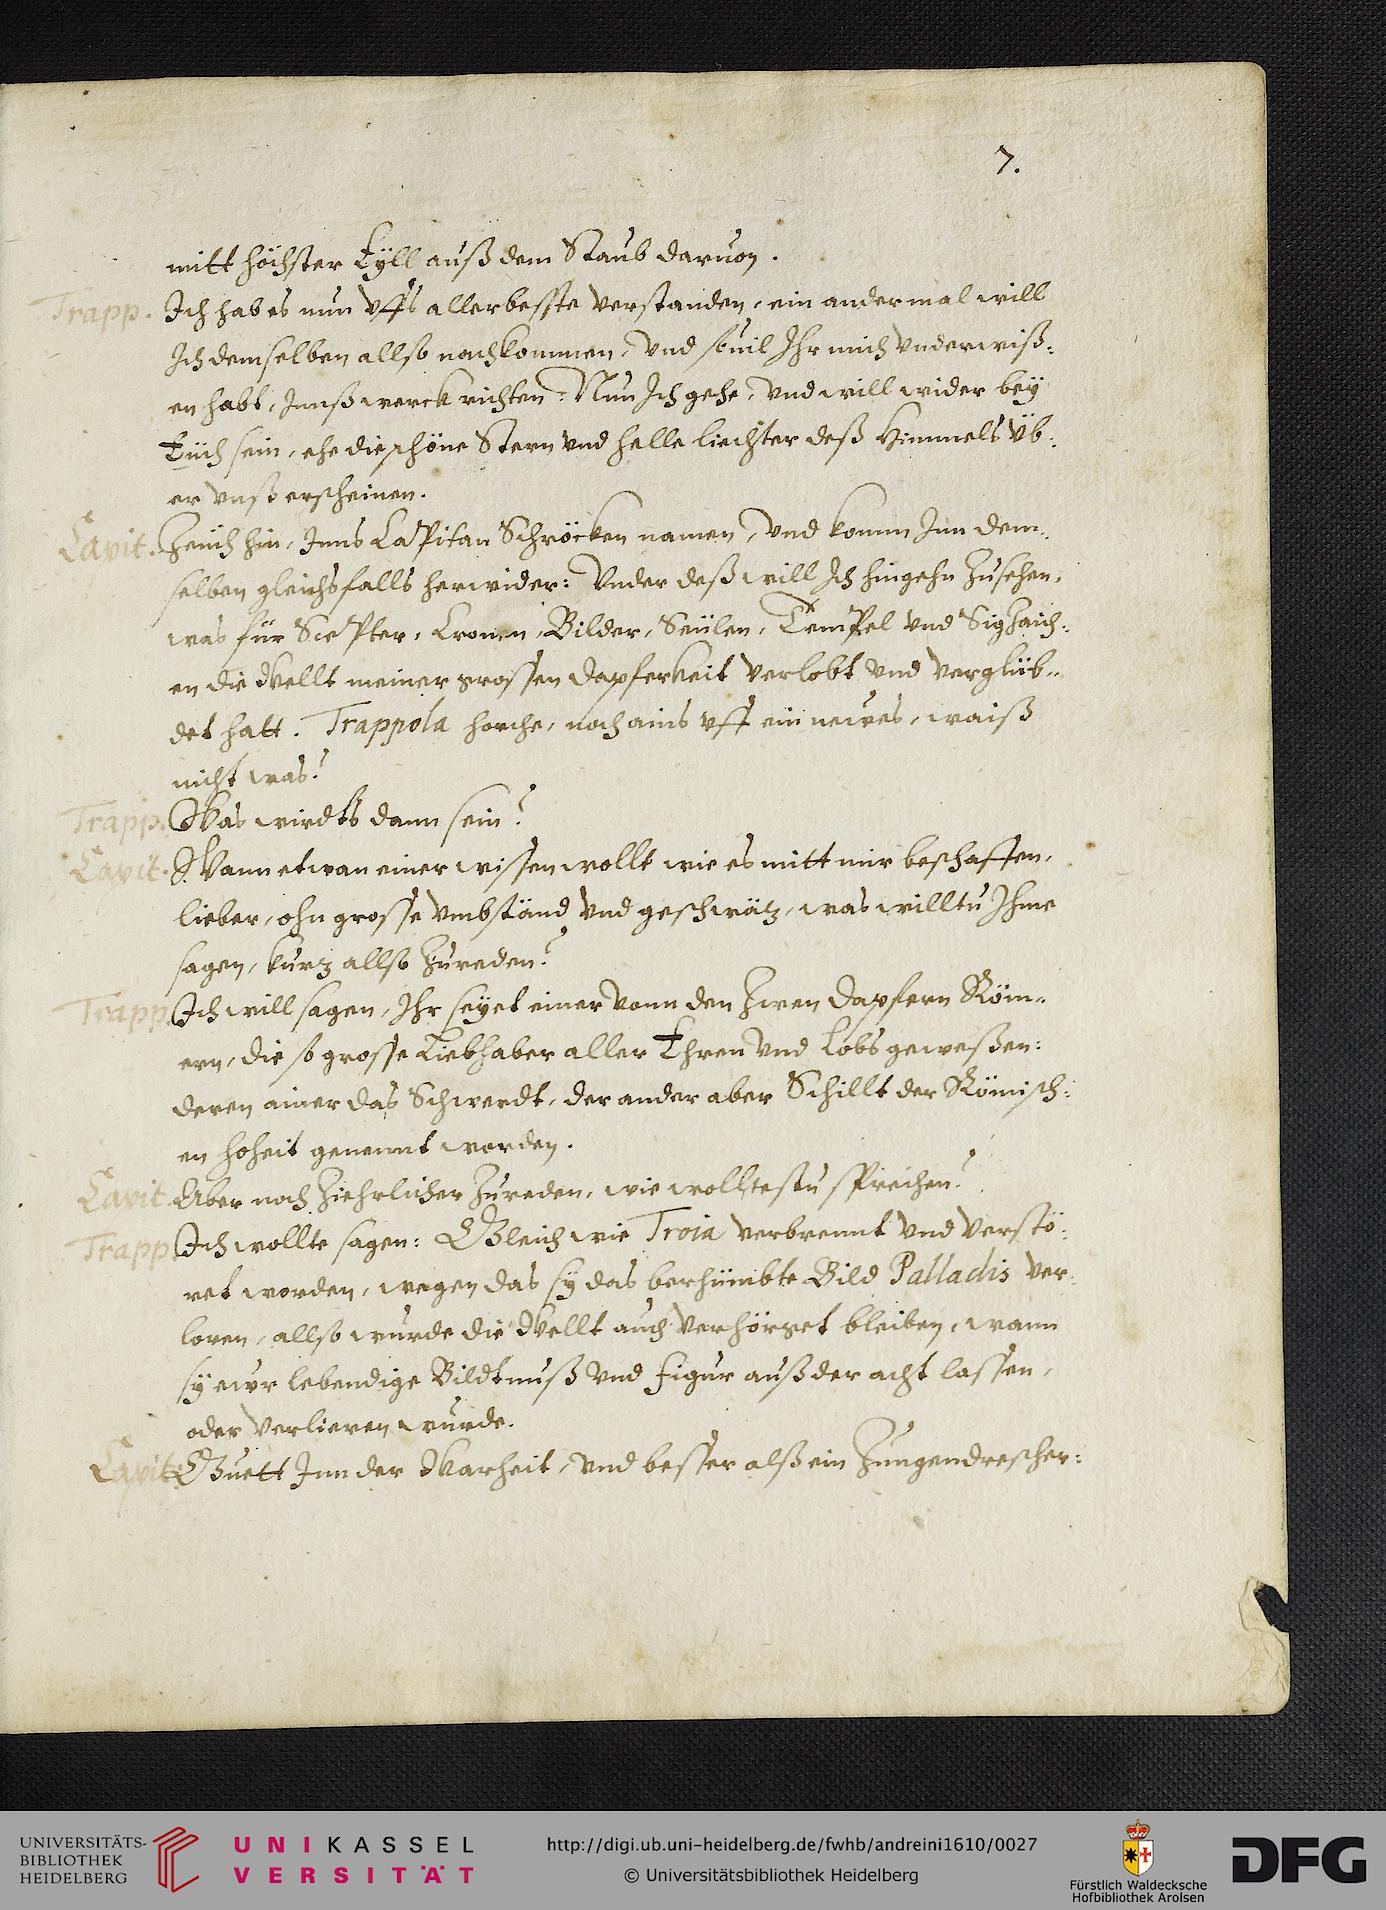 7.
mitt höchster Eÿll auß dem Staub daruon.
Trapp. Ich hab es nun vffs allerbesste verstanden, ein ander mal will
Ich demselben allso nachkommen, vnd souil Ihr mich vnderwiß:
en habt, Innß werck richten: Nun Ich gehe, vnd will wider beÿ
Eüch sein, ehe die schöne Stern vnd helle liechter deß Himmels üb:
er vnß erscheinen.
Capit. Zeüch hin, Inns Capitan Schröcken namen, vnd komm Inn dem:
selben gleichsfalls herwider: Vnder deß will Ich hingehn zusehen,
was für Scepter, Cronen, Bilder, Seülen, Tempel vnd Sigzaich:
en die Wellt meiner grossen dapferkeit verlobt vnd verglüb:
det hatt. Trappola horche, noch ains vff ein newes, waiß
nicht was?
Trapp. Was wirdts dann sein?
Capit. Wann etwan einer wissen wollt wie es mitt mir beschaffen,
lieber, ohn grosse vmbständ vnd geschwätz, was willtu Ihme
sagen, kurz allso zureden?
Trapp. Ich will sagen, Ihr seÿet einer vonn den zwen dapfern Röm:
ern, die so grosse Liebhaber aller Ehren vnd Lobs geweßen:
deren ainer das Schwerdt, der ander aber Schillt der Römisch:
en hoheit genennt worden.
Capit. Aber noch ziehrlicher zureden, wie wolltestu sprechen?
Trapp. Ich wollte sagen: Gleich wie Troia verbrennt vnd verstö:
ret worden, wegen das sÿ das berhümbte Bild Palladis ver:
loren, allso wurde die Wellt auch verhörget bleiben, wann
sÿ ewr lebendige Bildtnuß vnd figur auß der acht lassen,
oder verlieren wurde.
Capit. Guett Inn der Warheit, vnd besser alß ein Zungendrescher:
UNIVERSITÄTS-
BIBLIOTHEK
HEIDELBERG
UNIKASSEL
VERSITÄT
http://digi.ub.uni-heidelberg.de/fwhb/andreini1610/0027
© Universitätsbibliothek Heidelberg
Fürstlich Waldecksche
Hofbibliothek Arolsen
DFG